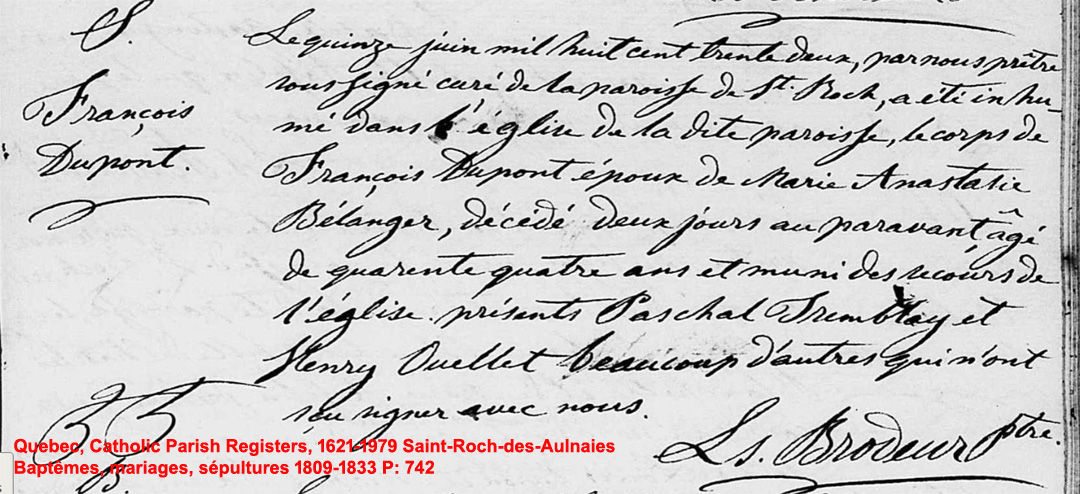 S.
François
Dupont.
Le quinze juin mil huit cent trente deux, par nous prêtre
soussigné curé de la paroisse de St. Roch, a été inhu-
mé dans l'église de la dite paroisse, le corps de
François Dupont époux de Marie Anastasie
Bélanger, décédé deux jours au paravant, âgé
de quarente quatre ans et muni des secours de
l'église. présents Paschal Tremblay et
Henry Ouellet beaucoup d'autres qui n'ont
sçu signer avec nous.
Ls. Brodeur Ptre.
Quebec, Catholic Parish Registers, 1621-1979 Saint-Roch-des-Aulnaies
Baptêmes, mariages, sépultures 1809-1833 P: 742
B.